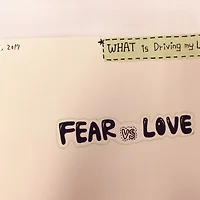 , 2017
*WHAT is Driving my L
FEAR vs LOVE